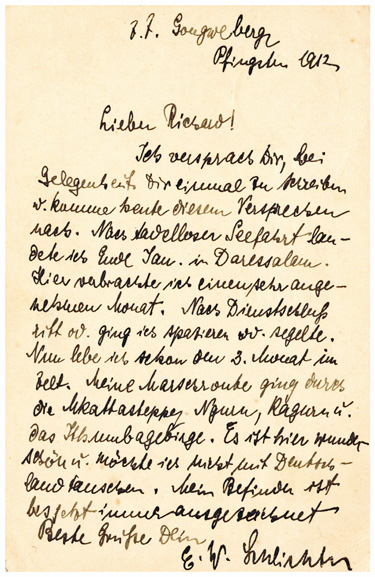 z. Z. Gongweberg
Pfingsten 1912
Lieber Richard!
Ich versprach Dir, bei
Gelegenheit Dir einmal zu schreiben
u. komme heute diesem Versprechen
nach. Nach tadelloser Seefahrt lan-
dete ich Ende Jan. in Daressalam.
Hier verbrachte ich einen sehr ange-
nehmen Monat. Nach Dienstschluß
ritt od. ging ich spazieren od. segelte.
Nun lebe ich schon den 3. Monat im
Zelt. Meine Marschroute ging durch
die Mkattasteppe, Nguru, Kaguru u.
das Itumbagebirge. Es ist hier wunder-
schön u. möchte ich nicht mit Deutsch-
land tauschen. Mein Befinden ist
bis jetzt immer ausgezeichnet
Beste Grüße Dein
E. W. Schlichter